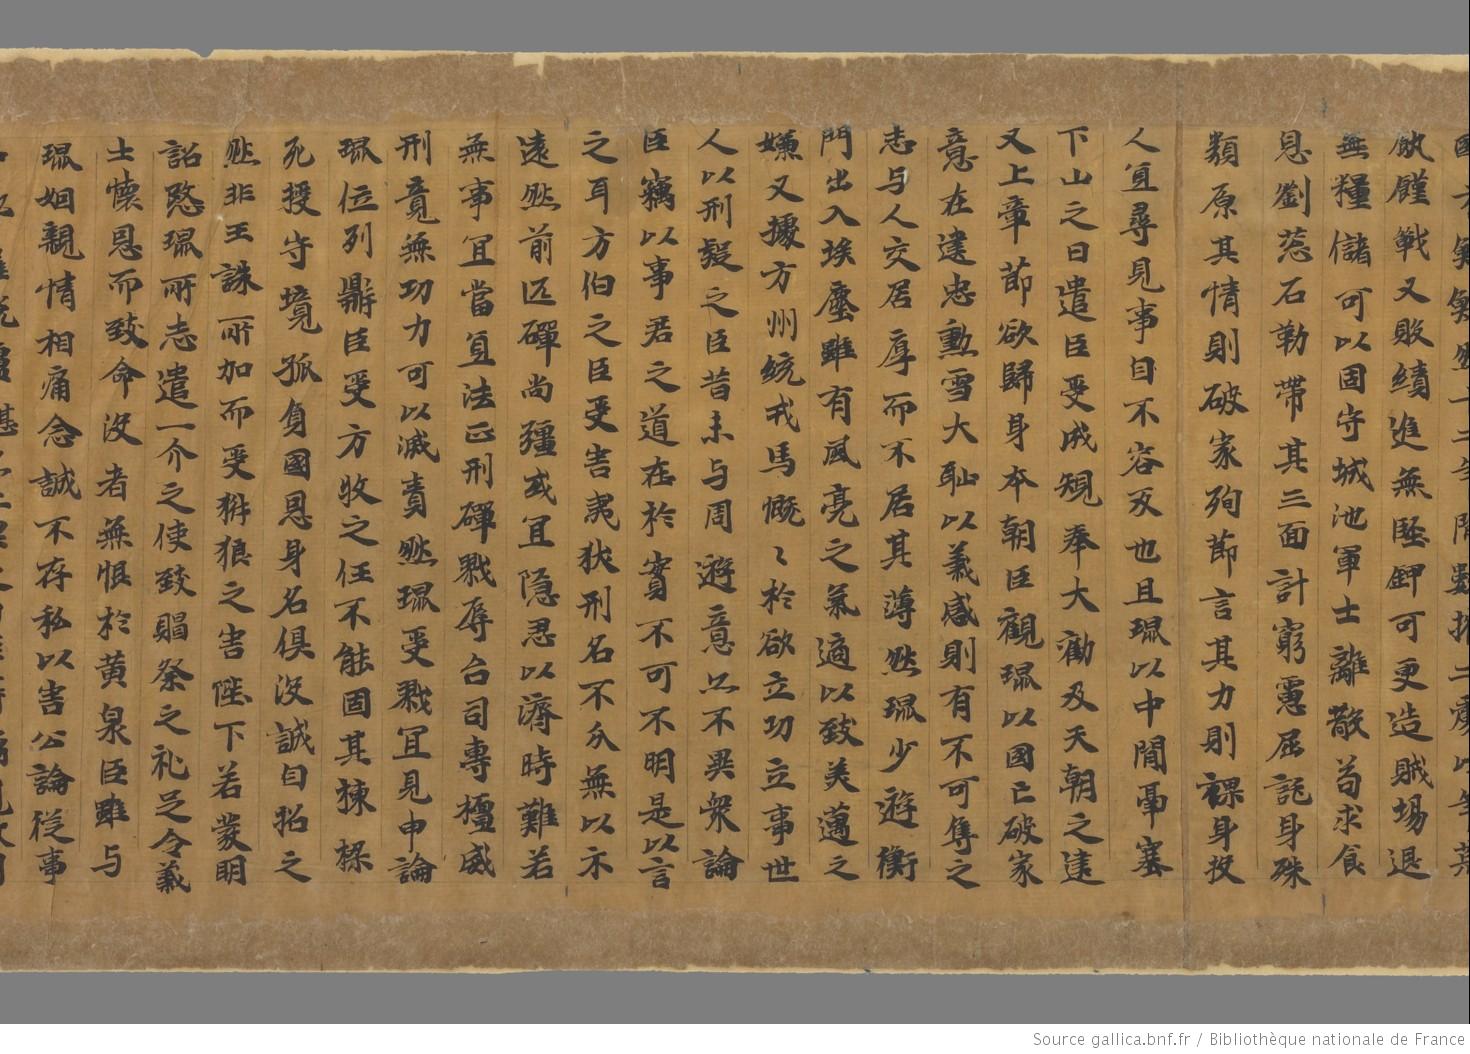 飢饉戰又敗績進無堅鉀可更造賊場退
無糧儲可以固守城池軍士離散苟求食
息劉茘石勒帶其三面計窮慮屈詑身殊
類原其情則破家殉節言其力則裸身投
人宜尋見事自不容及也且琨以中閒䎽塞
下山之日遣臣受成規奉大勸及天朝之逮
又上章節欲歸身本朝臣觀琨以國亡破家
意在遠忠勲雪大恥以義感則有不可隻之
志与人交居厚而不居其薄然琨少遊衡
門出入埃塵雖有風亮之氣適以致美邁之
嫌又據方州統戎馬慨〻於欲立功立事世
人以刑疑之臣昔未与周遊意尔不異衆論
臣竊以事君之道在於實不可不明是以言
之耳方伯之臣受害夷狄刑名不分無以示
遠然前匹磾尚彊或宜隐忍以濟時難若
無事宜當宜法正刑磾戮辱台司專檀威
刑竟無功力可以滅責然琨受戮宜見申論
琨位列鼎臣受方牧之任不能固其棟檪
死授守境孤負國恩身名俱没誠自招之
然非王誅所加而受猘狼之害陛下若蒙明
詔愍琨所志遣一介之使致賜祭之礼足令義
士懷恩而致命没者無恨於黄泉臣雖与
琨姻親情相痛念誠不存私以害公論従事